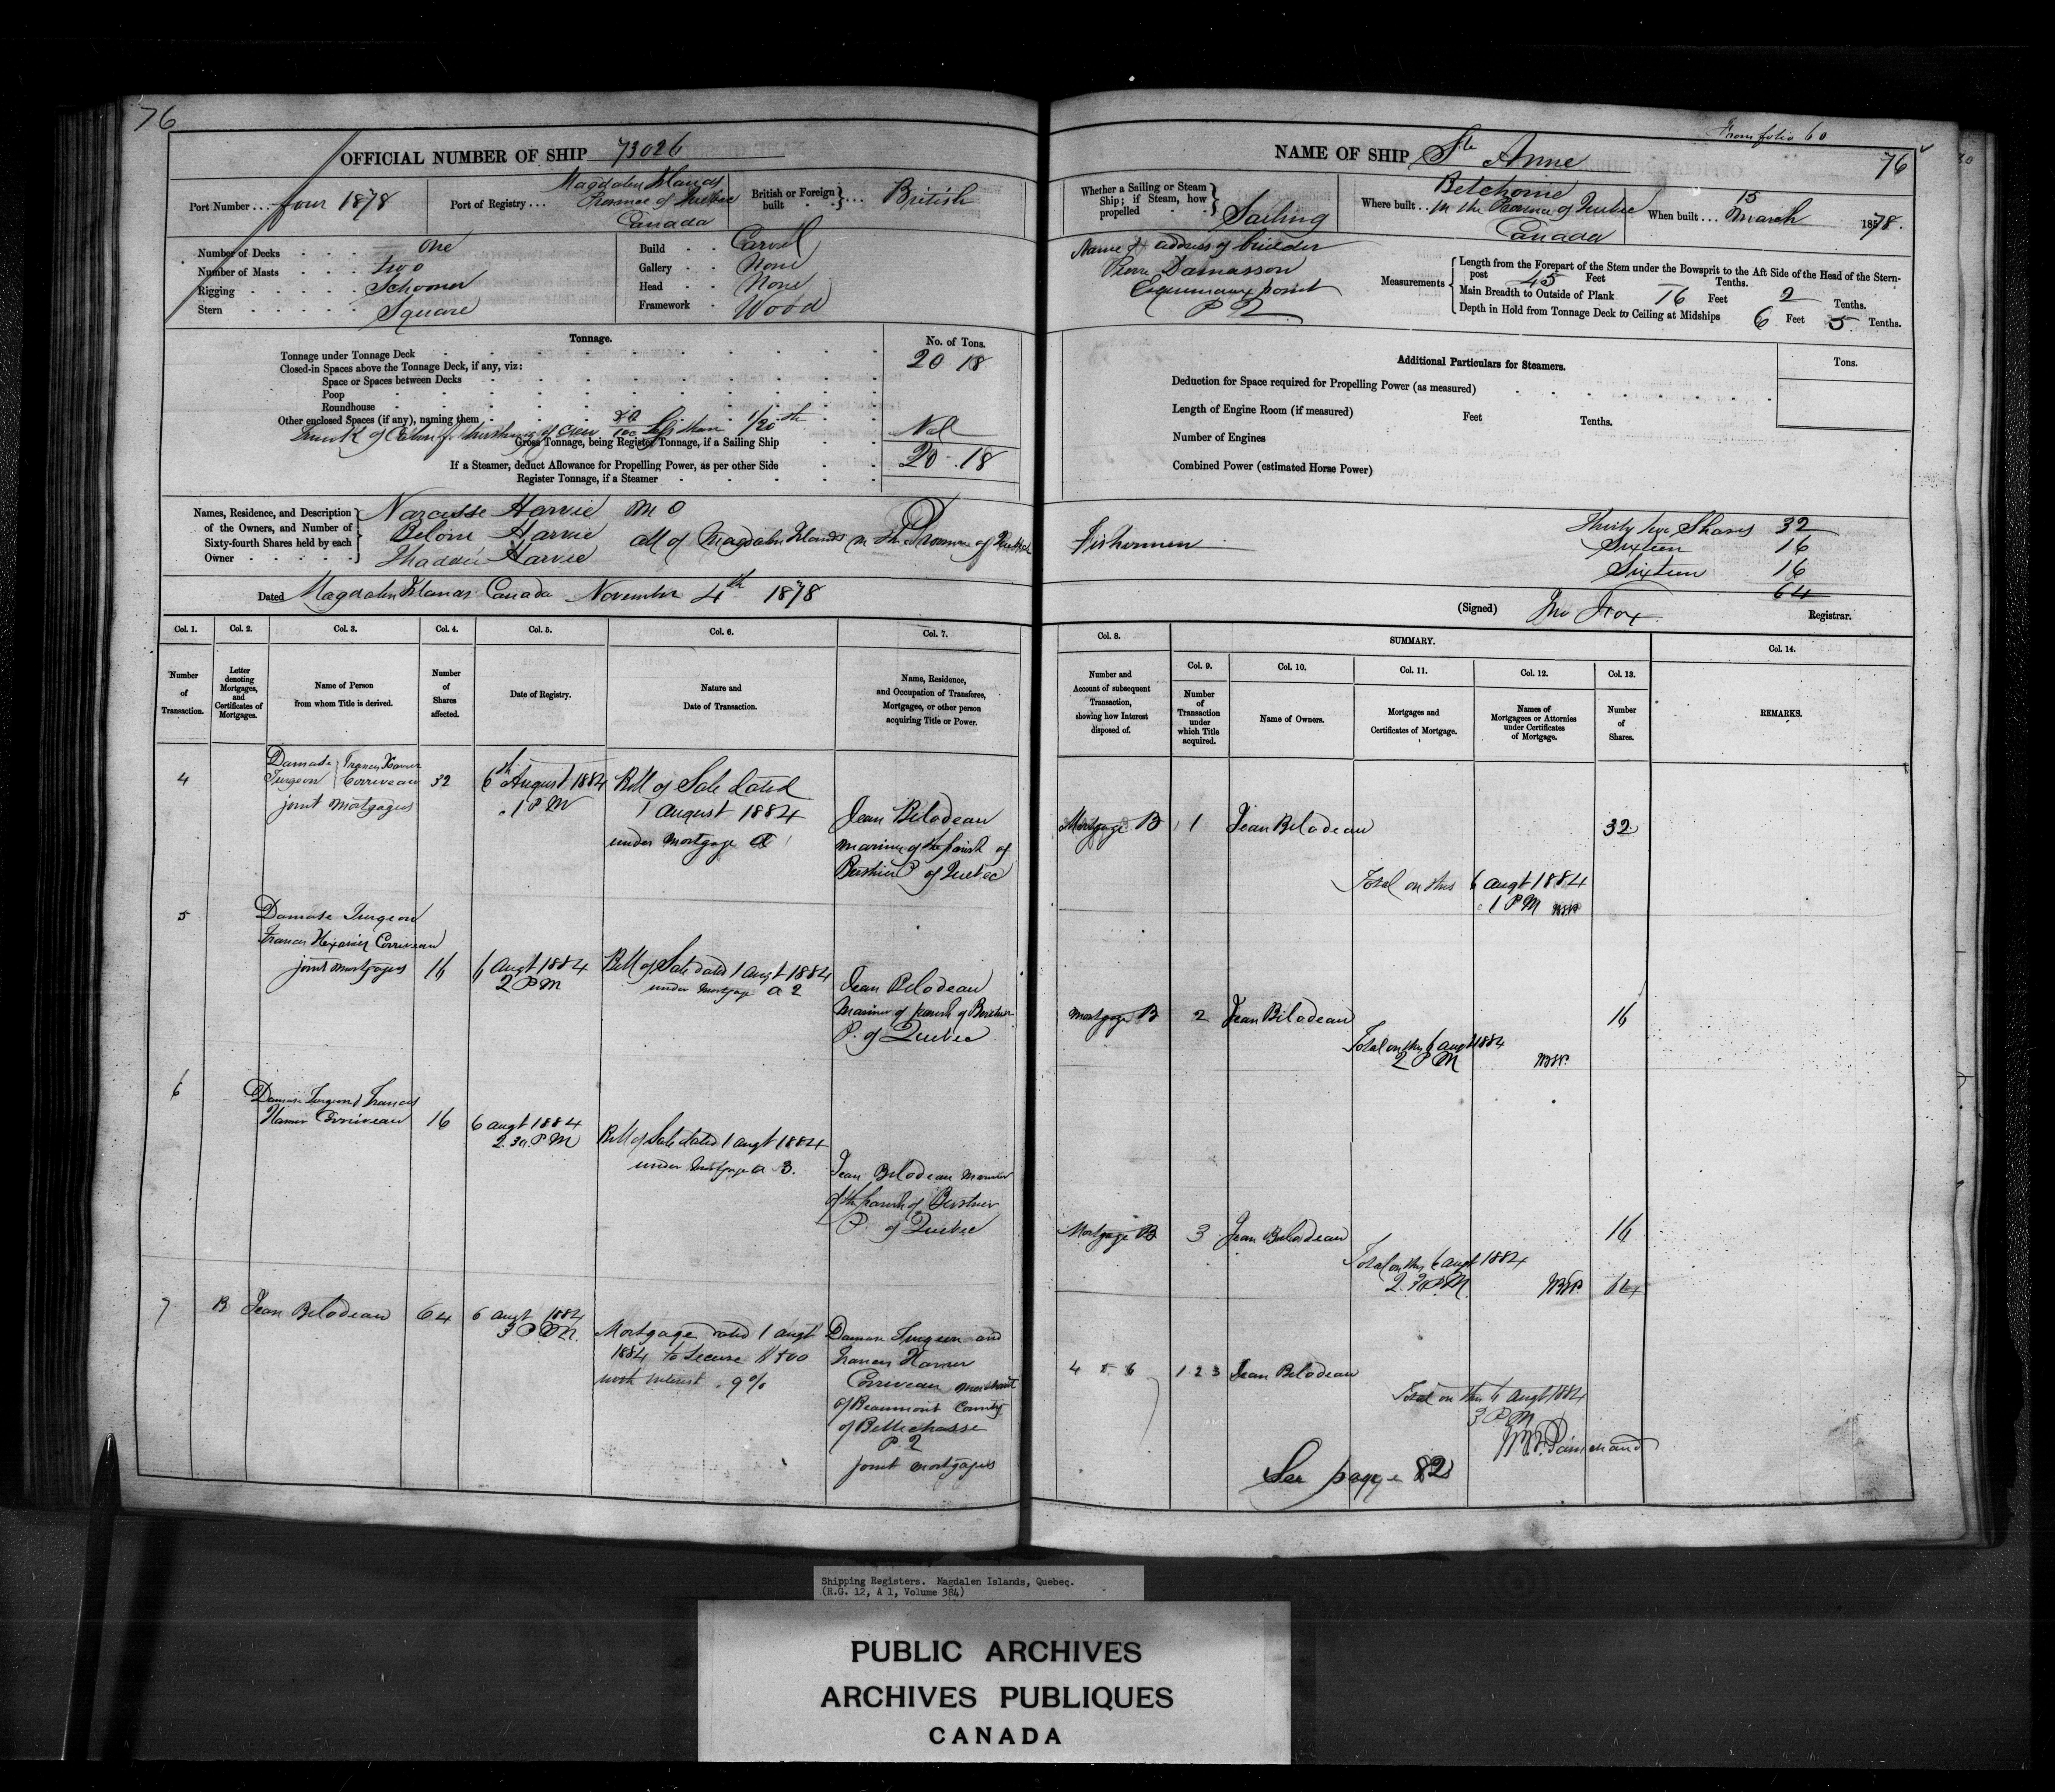 76
OFFICIAL NUMBER OF SHIP 73026
Port Number ... four 1878
Port of Registry ... Magdalen Islands
Province of Quebec
Canada
British or Foreign built ... British
Number of Decks . . . One
Number of Masts . . . two
Rigging . . . Schooner
Stern . . . Square
Build . . Carvel
Gallery . . None
Head . . None
Framework . Wood
Tonnage.
No. of Tons.
Tonnage under Tonnage Deck 20 18
Closed-in Spaces above the Tonnage Deck, if any, viz:
Space or Spaces between Decks
Poop
Roundhouse
Other enclosed Spaces (if any), naming them
Trunk of Cabin for berthing of Crew 80/100 less than 1/20th Nil
Gross Tonnage, being Register Tonnage, if a Sailing Ship 20 . 18
If a Steamer, deduct Allowance for Propelling Power, as per other Side
Register Tonnage, if a Steamer
Names, Residence, and Description of the Owners, and Number of Sixty-fourth Shares held by each Owner
Narcisse Harvie M O
Belonie Harvie
Thaddé Harvie
all of Magdalen Islands in the Province of Quebec
Dated Magdalen Islands Canada November 4th 1878
Col. 1.
Number of Transaction.
Col. 2.
Letter denoting Mortgages, and Certificates of Mortgages.
Col. 3.
Name of Person from whom Title is derived.
Col. 4.
Number of Shares affected.
Col. 5.
Date of Registry.
Col. 6.
Nature and Date of Transaction.
Col. 7.
Name, Residence, and Occupation of Transferee, Mortgagee, or other person acquiring Title or Power.
4
Damase Turgeon
Francis Xavier Corriveau
joint Mortgagees
32
6th August 1884
1 P M
Bill of Sale dated
1 August 1884
under Mortgage A
Jean Bilodeau
mariner of the parish of
Berthier P of Quebec
5
Damase Turgeon
Francis Xavier Corriveau
joint mortgagees
16
6 Augt 1884
2 P M
Bill of Sale dated 1 augt 1884
under Mortgage A 2
Jean Bilodeau
Mariner of parish of Berthier
P. of Quebec
6
Damase Turgeon & Francis
Xavier Corriveau
16
6 augt 1884
2.30 P M
Bill of Sale dated 1 augt 1884
under Mortgage A 3.
Jean Bilodeau Mariner
of the parish of Berthier
P. of Quebec
7
B
Jean Bilodeau
64
6 augt 1884
3 P M.
Mortgage dated 1 augt
1884 to secure
with interest 9%
Damase Turgeon and
Francis Xavier
Corriveau merchant
of Beaumont County
of Bellechasse
P. Q
joint mortgagees
From folio 60
NAME OF SHIP Ste Anne
76
Whether a Sailing or Steam Ship; if Steam, how propelled Sailing
Where built ... Betchouine
In the Province of Quebec
Canada
When built ... 15 March 1878.
Name & address of builder
Pierre Damasson
Esquimaux point
P Q
Measurements
Length from the Forepart of the Stem under the Bowsprit to the Aft Side of the Head of the Stern-post 45 Feet Tenths.
Main Breadth to Outside of Plank 16 Feet 2 Tenths.
Depth in Hold from Tonnage Deck to Ceiling at Midships 6 Feet 5 Tenths.
Additional Particulars for Steamers.
Tons.
Deduction for Space required for Propelling Power (as measured)
Length of Engine Room (if measured) Feet Tenths.
Number of Engines
Combined Power (estimated Horse Power)
Fishermen
Thirty two Shares 32
Sixteen 16
Sixteen 16
64
(Signed) Jno Fox Registrar.
Col. 8.
Number and Account of subsequent Transaction, showing how Interest disposed of.
SUMMARY.
Col. 9.
Number of Transaction under which Title acquired.
Col. 10.
Name of Owners.
Col. 11.
Mortgages and Certificates of Mortgage.
Col. 12.
Names of Mortgagees or Attornies under Certificates of Mortgage.
Col. 13.
Number of Shares.
Col. 14.
REMARKS.
Mortgage B 1 Jean Bilodeau 32
Total on this 6 augt 1884
1 P M
Mortgage B 2 Jean Bilodeau 16
Total on this 6 augt 1884
2 P M
Mortgage B 3 Jean Bilodeau 16
Total on this 6 augt 1884
2.30 P.M. 64
4 5 6 1 2 3 Jean Bilodeau
Total on this 6 augt 1884
3 P M
Painchaud
See page 82
Shipping Registers. Magdalen Islands, Quebec.
(R.G. 12, A 1, Volume 384)
PUBLIC ARCHIVES
ARCHIVES PUBLIQUES
CANADA